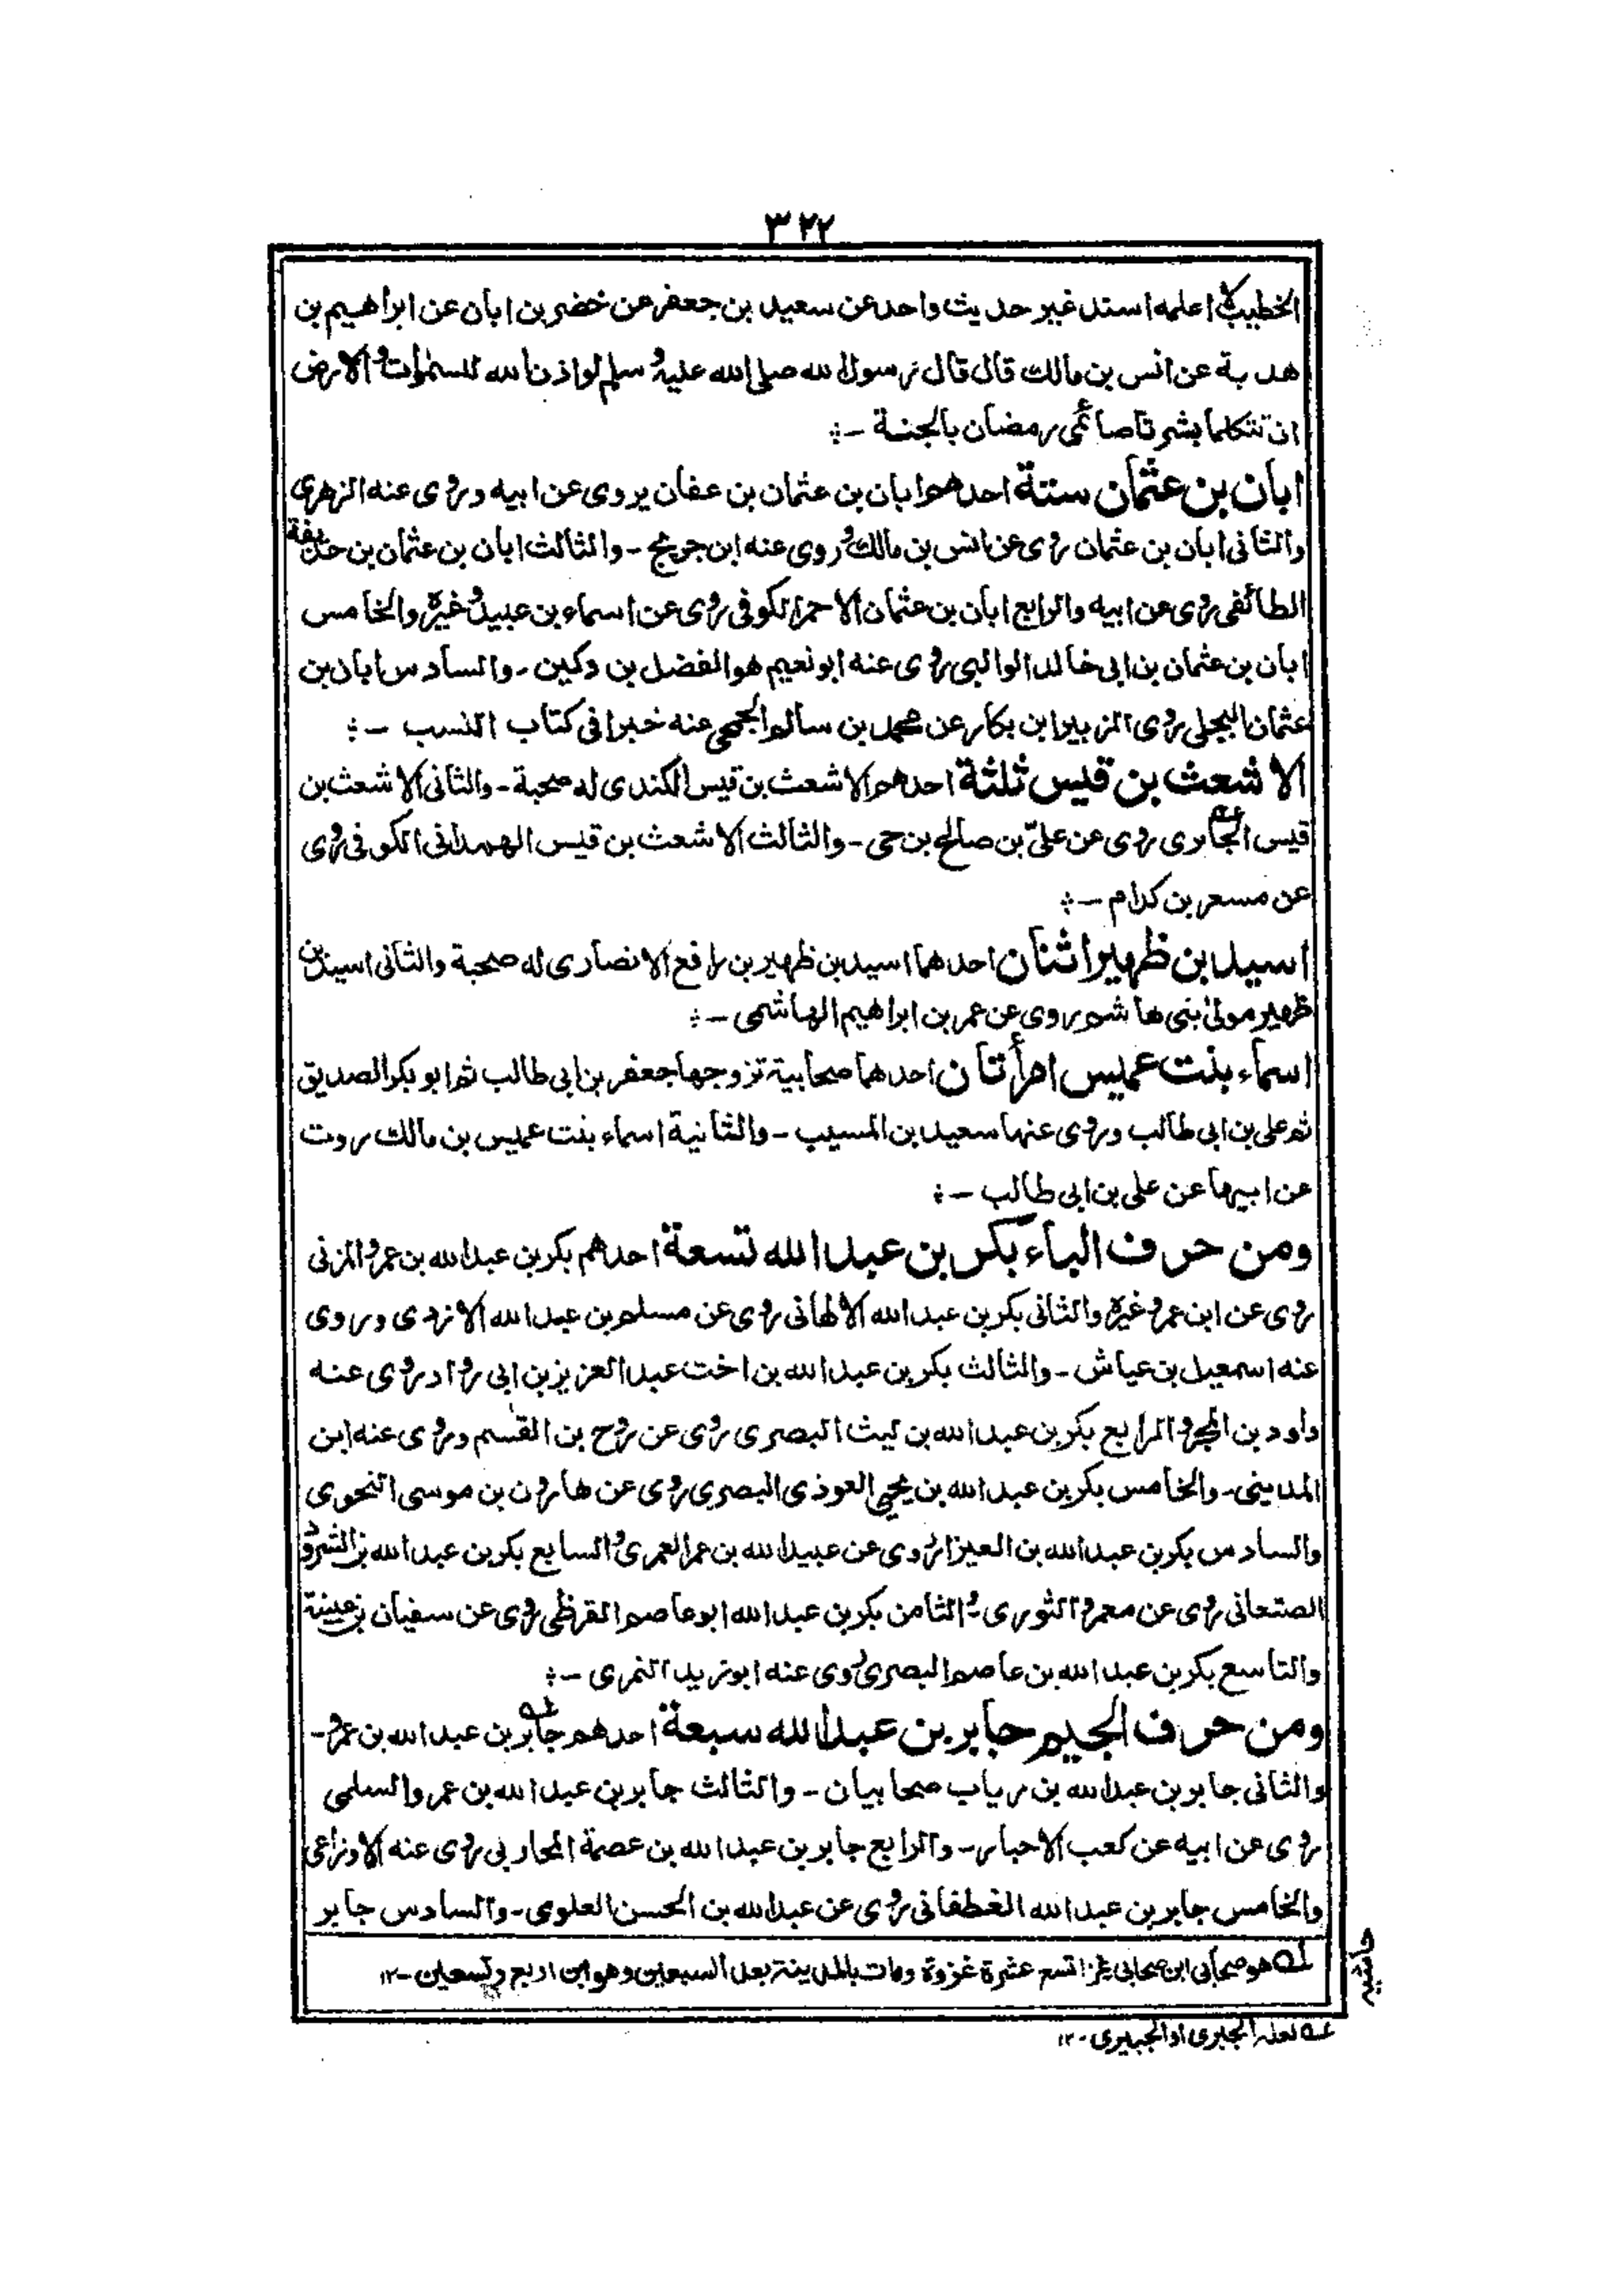 ٣٢٢
الخطيب لا اعلمه اسند غير حديث واحد عن سعيد بن جعفر عن خضر بن ابان عن ابراهيم بن
هدبة عن انس بن مالك قال قال رسول الله صلى الله عليه وسلم لو اذن الله للسمٰوات والارض
ان تتكلما بشرتا صائمي رمضان بالجنة -:
ابان بن عثمان ستة احدهم ابان بن عثمان بن عفان يروى عن ابيه وروى عنه الزهري
والثانى ابان بن عثمان روى عن انس بن مالك وروى عنه ابن جريج - والثالث ابان بن عثمان بن حذيفة
الطائفى روى عن ابيه والرابع ابان بن عثمان الاحمر الكوفى روى عن اسماء بن عبيد وغيره والخامس
ابان بن عثمان بن ابى خالد الوالبى روى عنه ابو نعيم هو الفضل بن دكين - والسادس ابان بن
عثمان البجلى روى الزبير ابن بكار عن محمد بن سالم الجمحى عنه خبرا فى كتاب النسب -:
الاشعث بن قيس ثلثة احدهم الاشعث بن قيس الكندى له صحبة - والثانى الاشعث بن
قيس الجابرى روى عن علىّ بن صالح بن حى - والثالث الاشعث بن قيس الهمدانى الكوفى روى
عن مسعر بن كدام -:
اسيد بن ظهير اثنان احدهما اسيد بن ظهير بن رافع الانصارى له صحبة والثانى اسيد بن
ظهير مولى بنى هاشم روى عن عمر بن ابراهيم الهاشمى -:
اسماء بنت عميس امرأتان احدهما صحابية تزوجها جعفر بن ابى طالب ثم ابو بكر الصديق
ثم على بن ابى طالب وروى عنها سعيد بن المسيب - والثانية اسماء بنت عميس بن مالك روت
عن ابيها عن على بن ابى طالب -:
ومن حرف الباء بكر بن عبد الله تسعة احدهم بكر بن عبد الله بن عمرو المزنى
روى عن ابن عمر وغيره والثانى بكر بن عبد الله الالهانى روى عن مسلم بن عبد الله الازدى وروى
عنه اسمعيل بن عياش - والثالث بكر بن عبد الله بن اخت عبد العزيز بن ابى رواد روى عنه
داود بن المحبر والرابع بكر بن عبد الله بن ليث البصرى روى عن روح بن القسم وروى عنه ابن
المدينى - والخامس بكر بن عبد الله بن يحيى العوذى البصرى روى عن هارون بن موسى النحوى
والسادس بكر بن عبد الله بن العيزار روى عن عبيد الله بن عمر العمرى والسابع بكر بن عبد الله بن الشرود
الصنعانى روى عن معمر والثورى والثامن بكر بن عبد الله ابو عاصم القرظى روى عن سفيان بن عيينة
والتاسع بكر بن عبد الله بن عاصم البصرى روى عنه ابو زيد النمرى -:
ومن حرف الجيم جابر بن عبد الله سبعة احدهم جابر بن عبد الله بن عمرو -
والثانى جابر بن عبد الله بن رياب صحابيان - والثالث جابر بن عبد الله بن عمرو السلمى
روى عن ابيه عن كعب الاحبار - والرابع جابر بن عبد الله بن عصمة المحاربى روى عنه الاوزاعى
والخامس جابر بن عبد الله الغطفانى روى عن عبد الله بن الحسن العلوى - والسادس جابر
له هو صحابى ابن صحابى غزا تسع عشرة غزوة ومات بالمدينة بعد السبعين وهو ابن اربع وتسعين - ١٢
حاشيه
عه لعله الجبرى او الجبيرى - ١٢